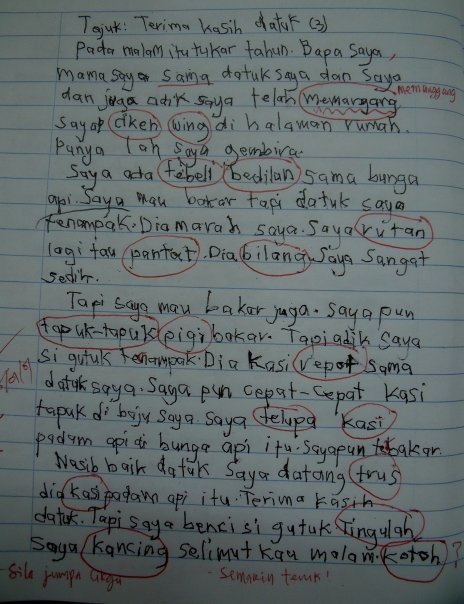 Tajuk: Terima kasih datuk (3)
Pada malam itu tukar tahun. Bapa saya,
mama saya sama datuk saya dan saya
dan juga adik saya telah memangang memanggang
sayap cikeh wing di halaman rumah.
Punya lah saya gembira.
Saya ada tebeli bedilan sama bunga
api. Saya mau bakar tapi datuk saya
tenampak. Dia marah saya. Saya rutan
lagi tau pantat. Dia bilang. Saya sangat
sedih.
Tapi saya mau bakar juga. Saya pun
tapuk-tapuk pigi bakar. Tapi adik saya
si gutuk tenampak. Dia kasi repot sama
datuk saya. Saya pun cepat-cepat kasi
tapuk di baju saya. Saya telupa kasi
padam api di bunga api itu. Saya pun tebakar.
Nasib baik datuk saya datang trus
dia kasi padam api itu. Terima kasih
datuk. Tapi saya benci si gutuk. Tingulah
Saya kancing selimut kau malam. kotoh ?
- Sila jumpa cikgu - Semakin teruk!